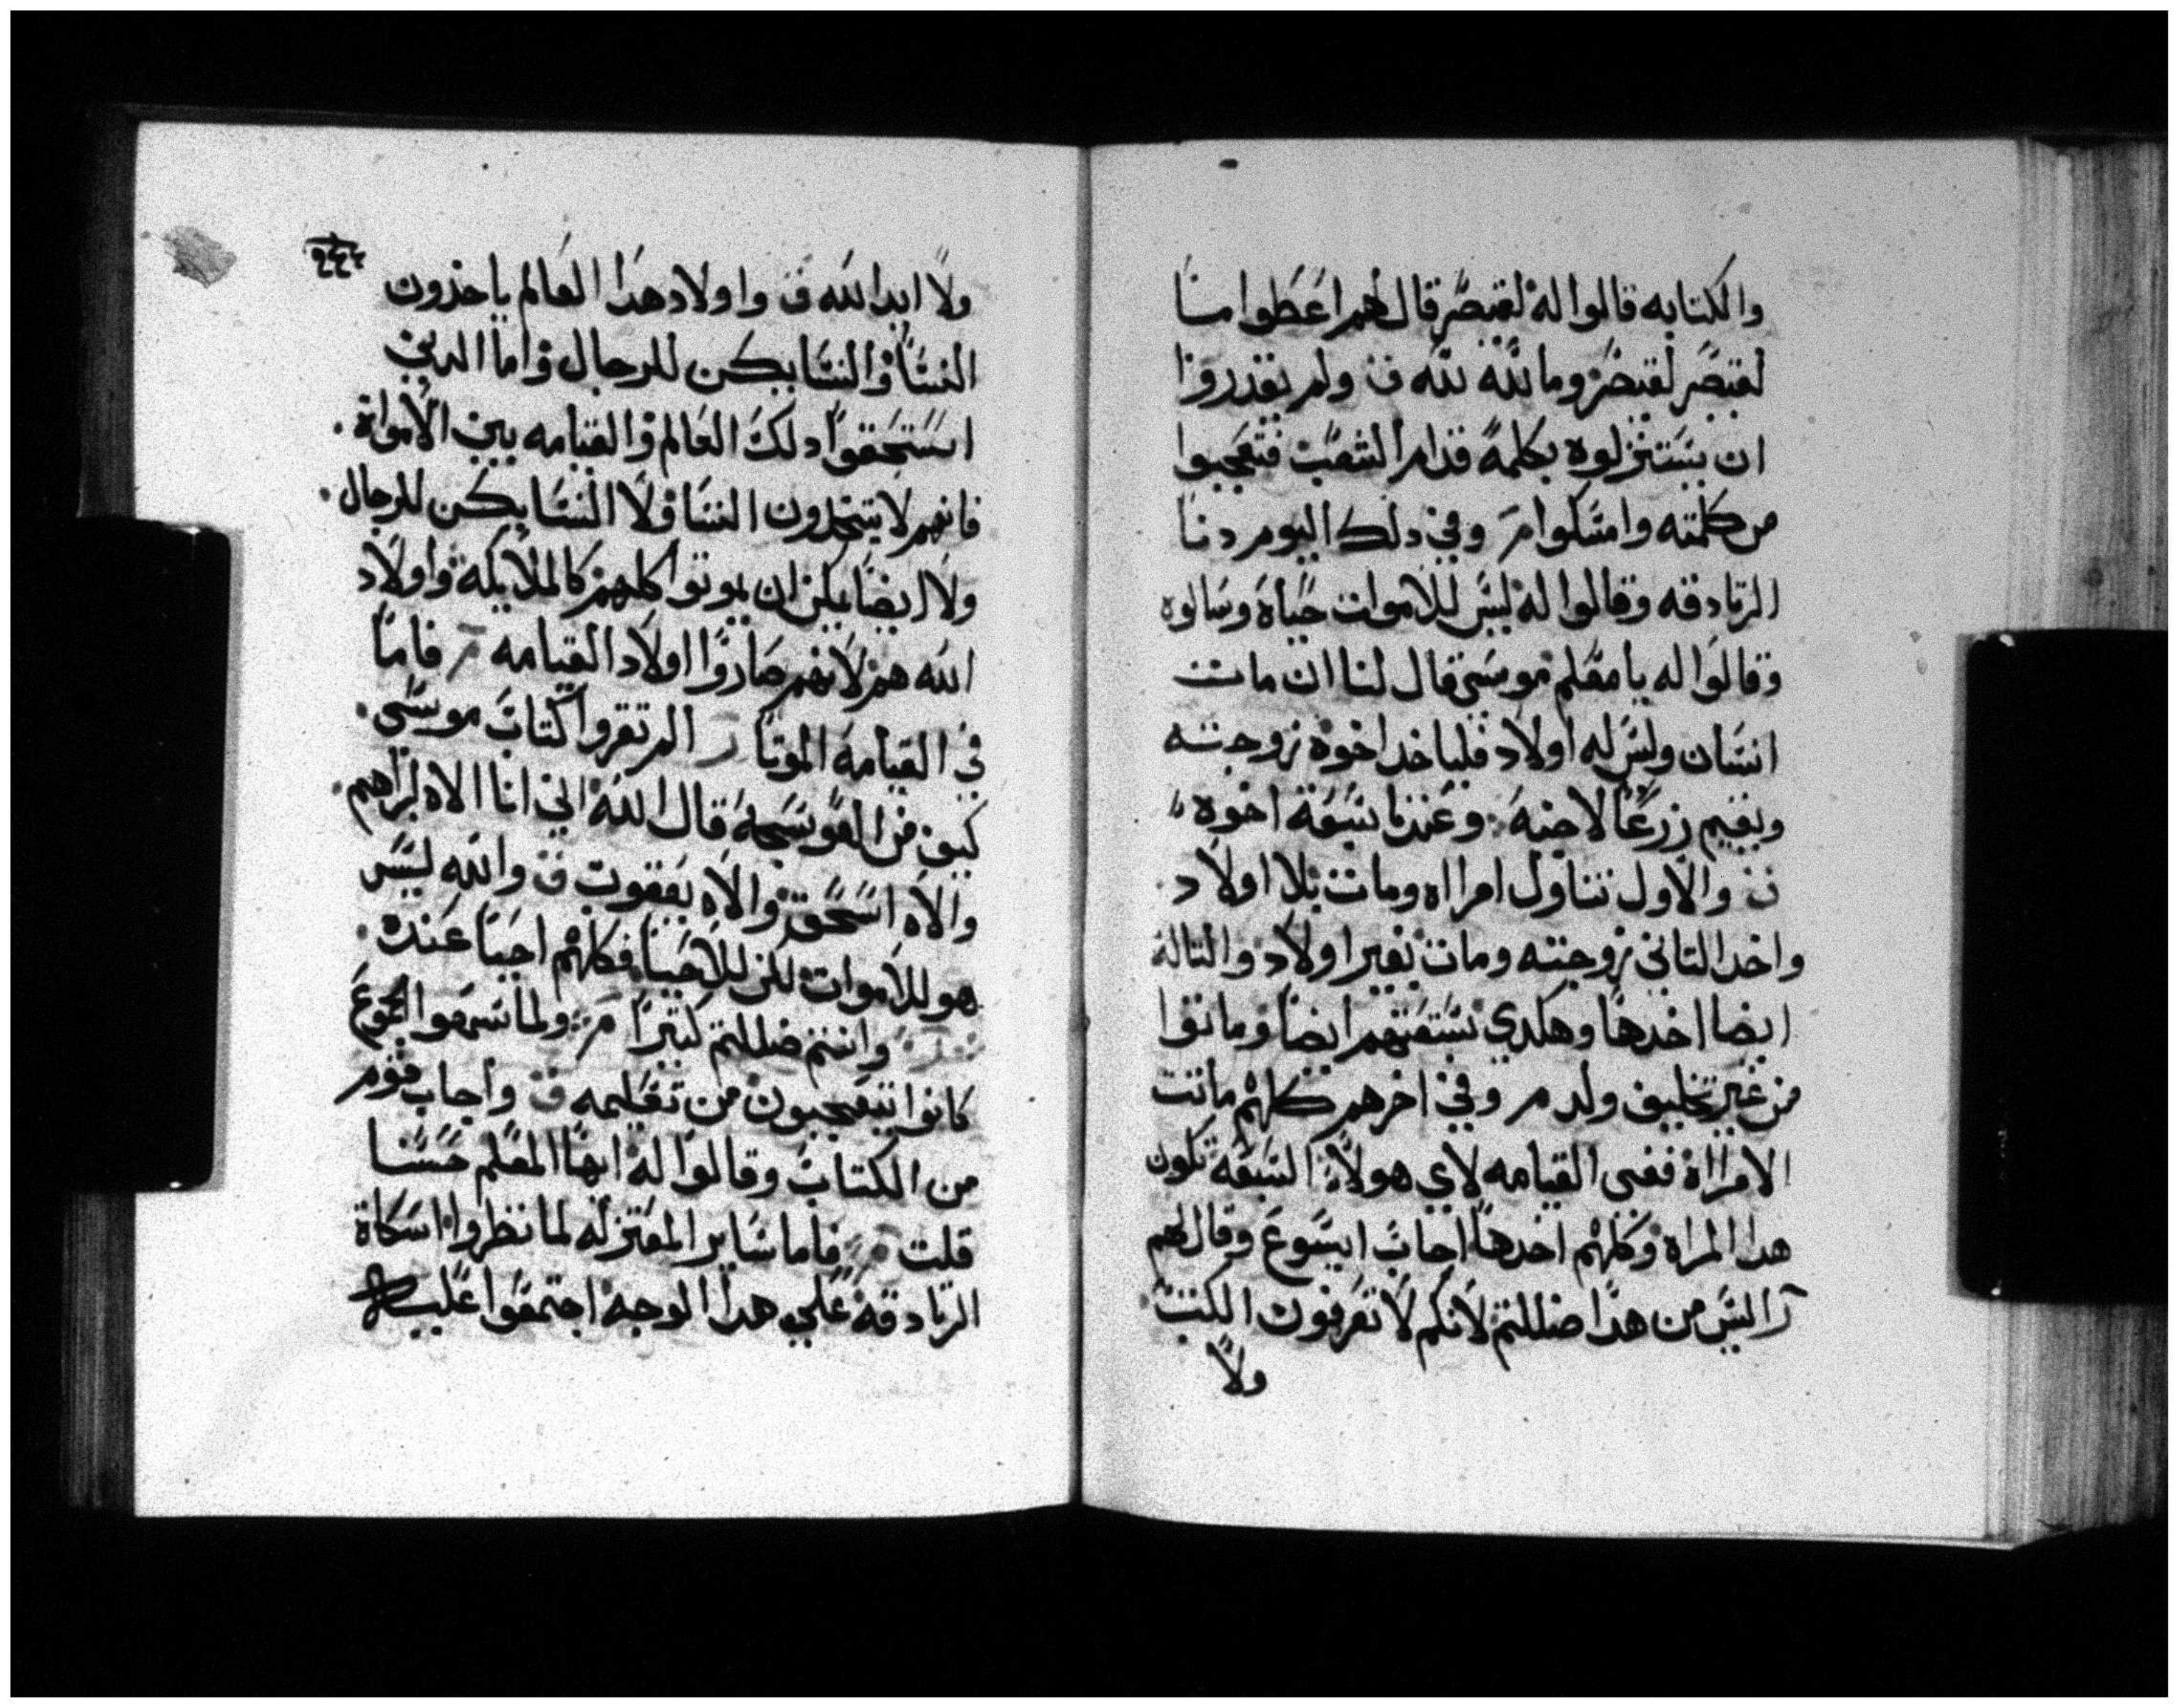 والكتابه قالوا له لقيصر قال لهم اعطوا منا
لقيصر لقيصر وما لله لله ف ولم يقدروا
ان يستنزلوه بكلمة قدام الشعب فتعجبوا
من كلمته وامسكوا مر وفي دلك اليوم دنا
الزنادقه وقالوا له ليس للاموات حياة وسالوه
وقالوا له يا معلم موسى قال لنا ان مات
انسان وليس له اولاد فلياخد اخوه زوجته
ويقيم زرعا لاخيه وعندنا سبعة اخوه
ف والاول تناول امراه ومات بلا اولاد
واخد التاني زوجته ومات بغير اولاد والتالت
ايضا اخدها وهكدي سبعتهم ايضا وماتوا
من غير تخليف ولد مر وفي اخرهم كلهم ماتت
الامراة ففي القيامه لاي هولا السبعة تكون
هدا المراه وكلهم اخدها اجاب ايسوع وقال لهم
اليس من هدا ضللتم لانكم لا تعرفون الكتب
ولا
٢٤٤
ولا ايد الله ف واولاد هدا العالم ياخدون
النسا والنسا يكن للرجال واما الدين
استحقوا دلك العالم والقيامه بين الاموات
فانهم لا يتخدون النسا ولا النسا يكن للرجال
ولا ايضا يمكن ان يموتوا كلهم كالملايكة واولاد
الله هم لانهم صاروا اولاد القيامه فاما
في القيامه الموتا الم تقروا كتاب موسى
كيف من العوسجة قال الله اني انا الاه ابراهيم
والاه اسحق والاه يعقوب ف والله ليس
هو للاموات لكن للاحيا فكلهم احيا عنده
وانتم ضللتم كتيرا مر ولما سمعوا الجموع
كانوا يتعجبون من تعليمه ف واجاب قوم
من الكتاب وقالوا له ايها المعلم حسنا
قلت فاما ساير المعتزله لما نظروا اسكاة
الزنادقة على هدا الوجه اجتمعوا عليه